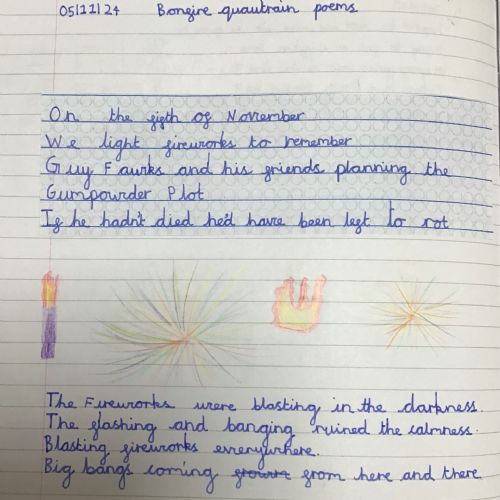 05/11/24 Bonfire quautrain poems
On the fifth of November
We light fireworks to remember
Guy Fawks and his friends planning the
Gumpowder Plot
If he hadn't died he'd have been left to rot
The Fireworks were blasting in the darkness.
The flashing and banging ruined the calmness.
Blasting fireworks everywhere.
Big bangs coming from here and there